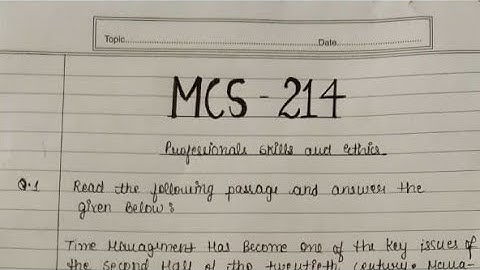 Topic..........Date..........
MCS - 214
Professionals skills and ethics
Q.1 Read the following passage and answer the
given Below:
Time Management Has Become one of the key issues of
the second Half of the twentieth century. Mana-